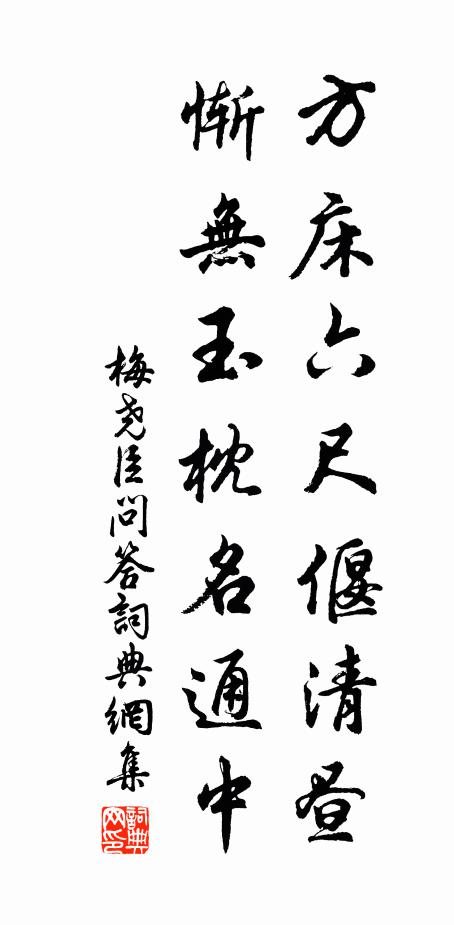 方床六尺偃清昼
惭無玉枕名通中
梅尧臣問答詞典網集
詞典网印